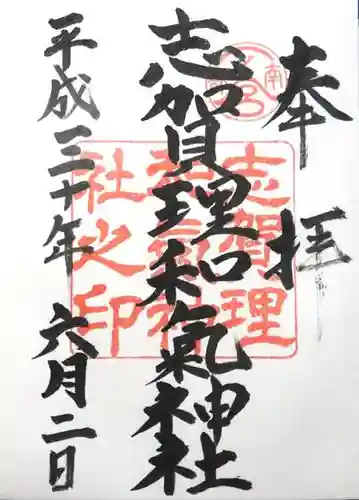 奉拝
志賀理和氣神社
平成三十年 六月二日
志賀理
和氣神
社之印